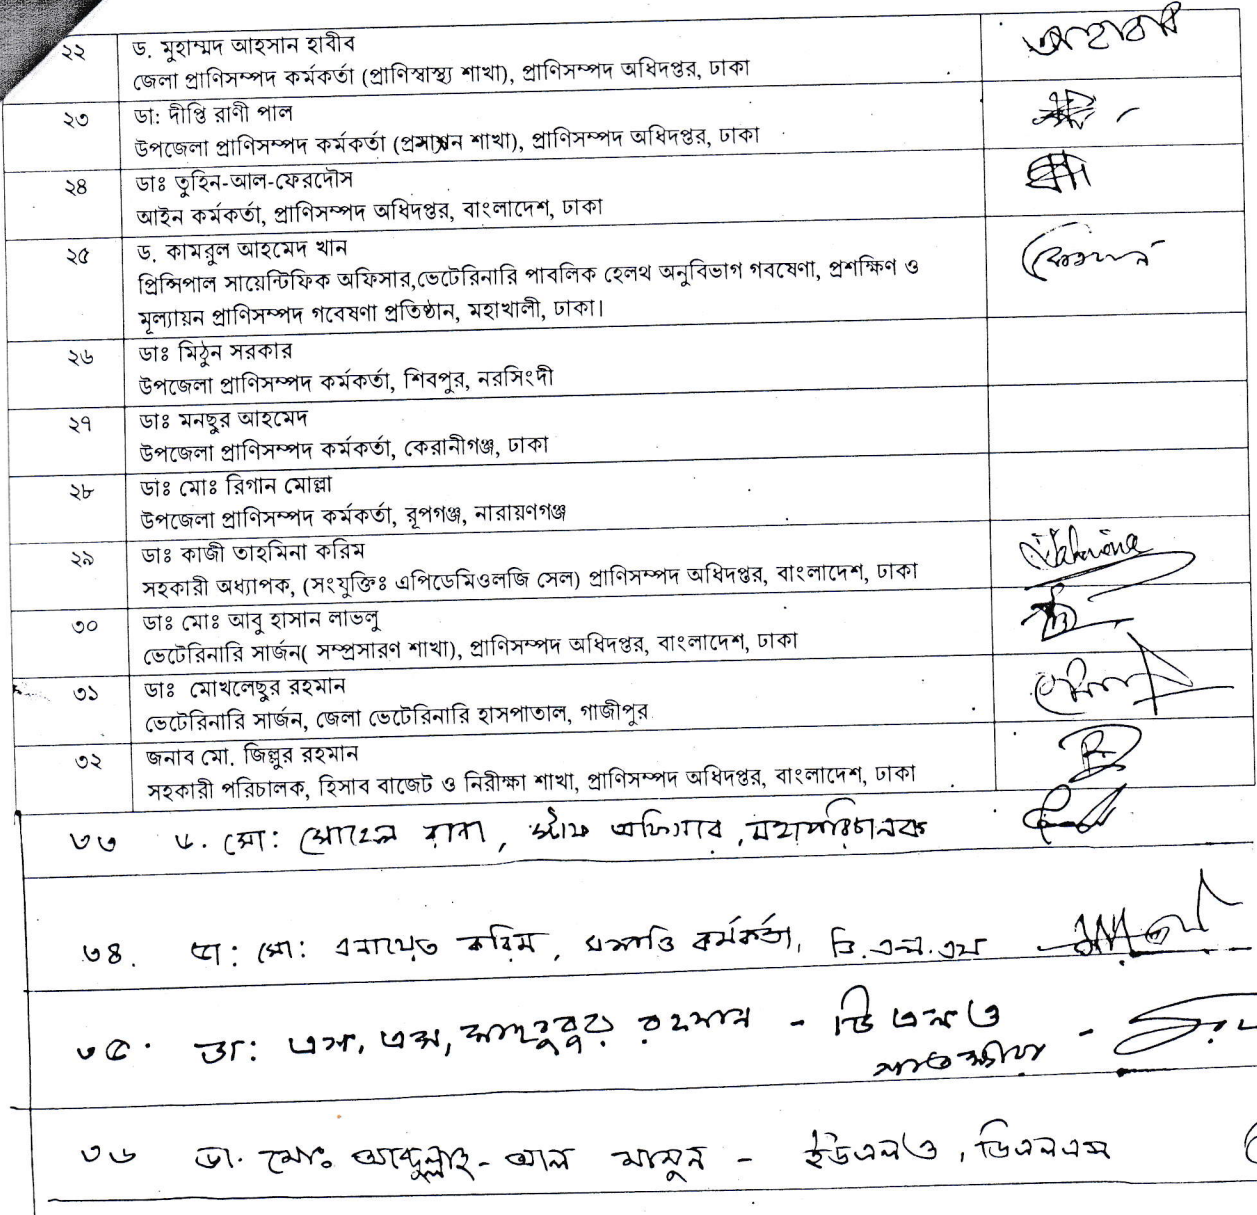 ২২ ড. মুহাম্মদ আহসান হাবীব
জেলা প্রাণিসম্পদ কর্মকর্তা (প্রাণিস্বাস্থ্য শাখা), প্রাণিসম্পদ অধিদপ্তর, ঢাকা
২৩ ডা: দীপ্তি রাণী পাল
উপজেলা প্রাণিসম্পদ কর্মকর্তা (প্রসাশন শাখা), প্রাণিসম্পদ অধিদপ্তর, ঢাকা
২৪ ডাঃ তুহিন-আল-ফেরদৌস
আইন কর্মকর্তা, প্রাণিসম্পদ অধিদপ্তর, বাংলাদেশ, ঢাকা
২৫ ড. কামরুল আহমেদ খান
প্রিন্সিপাল সায়েন্টিফিক অফিসার,ভেটেরিনারি পাবলিক হেলথ অনুবিভাগ গবষেণা, প্রশক্ষিণ ও
মূল্যায়ন প্রাণিসম্পদ গবেষণা প্রতিষ্ঠান, মহাখালী, ঢাকা।
২৬ ডাঃ মিঠুন সরকার
উপজেলা প্রাণিসম্পদ কর্মকর্তা, শিবপুর, নরসিংদী
২৭ ডাঃ মনছুর আহমেদ
উপজেলা প্রাণিসম্পদ কর্মকর্তা, কেরানীগঞ্জ, ঢাকা
২৮ ডাঃ মোঃ রিগান মোল্লা
উপজেলা প্রাণিসম্পদ কর্মকর্তা, রূপগঞ্জ, নারায়ণগঞ্জ
২৯ ডাঃ কাজী তাহমিনা করিম
সহকারী অধ্যাপক, (সংযুক্তিঃ এপিডেমিওলজি সেল) প্রাণিসম্পদ অধিদপ্তর, বাংলাদেশ, ঢাকা
৩০ ডাঃ মোঃ আবু হাসান লাভলু
ভেটেরিনারি সার্জন( সম্প্রসারণ শাখা), প্রাণিসম্পদ অধিদপ্তর, বাংলাদেশ, ঢাকা
৩১ ডাঃ মোখলেছুর রহমান
ভেটেরিনারি সার্জন, জেলা ভেটেরিনারি হাসপাতাল, গাজীপুর
৩২ জনাব মো. জিল্লুর রহমান
সহকারী পরিচালক, হিসাব বাজেট ও নিরীক্ষা শাখা, প্রাণিসম্পদ অধিদপ্তর, বাংলাদেশ, ঢাকা
৩৩ ড. মো: সোহেল রানা, স্টাফ অফিসার, মহাপরিচালক
৩৪. ডা: মো: এনায়েত করিম, কর্মকর্তা,
৩৫. ডা: এস, এম, মাহবুবুর রহমান - ডি এল ও
সাতক্ষীরা -
৩৬ ডা. মোঃ আব্দুল্লাহ- আল মামুন - ইউএলও, ডিএলএস